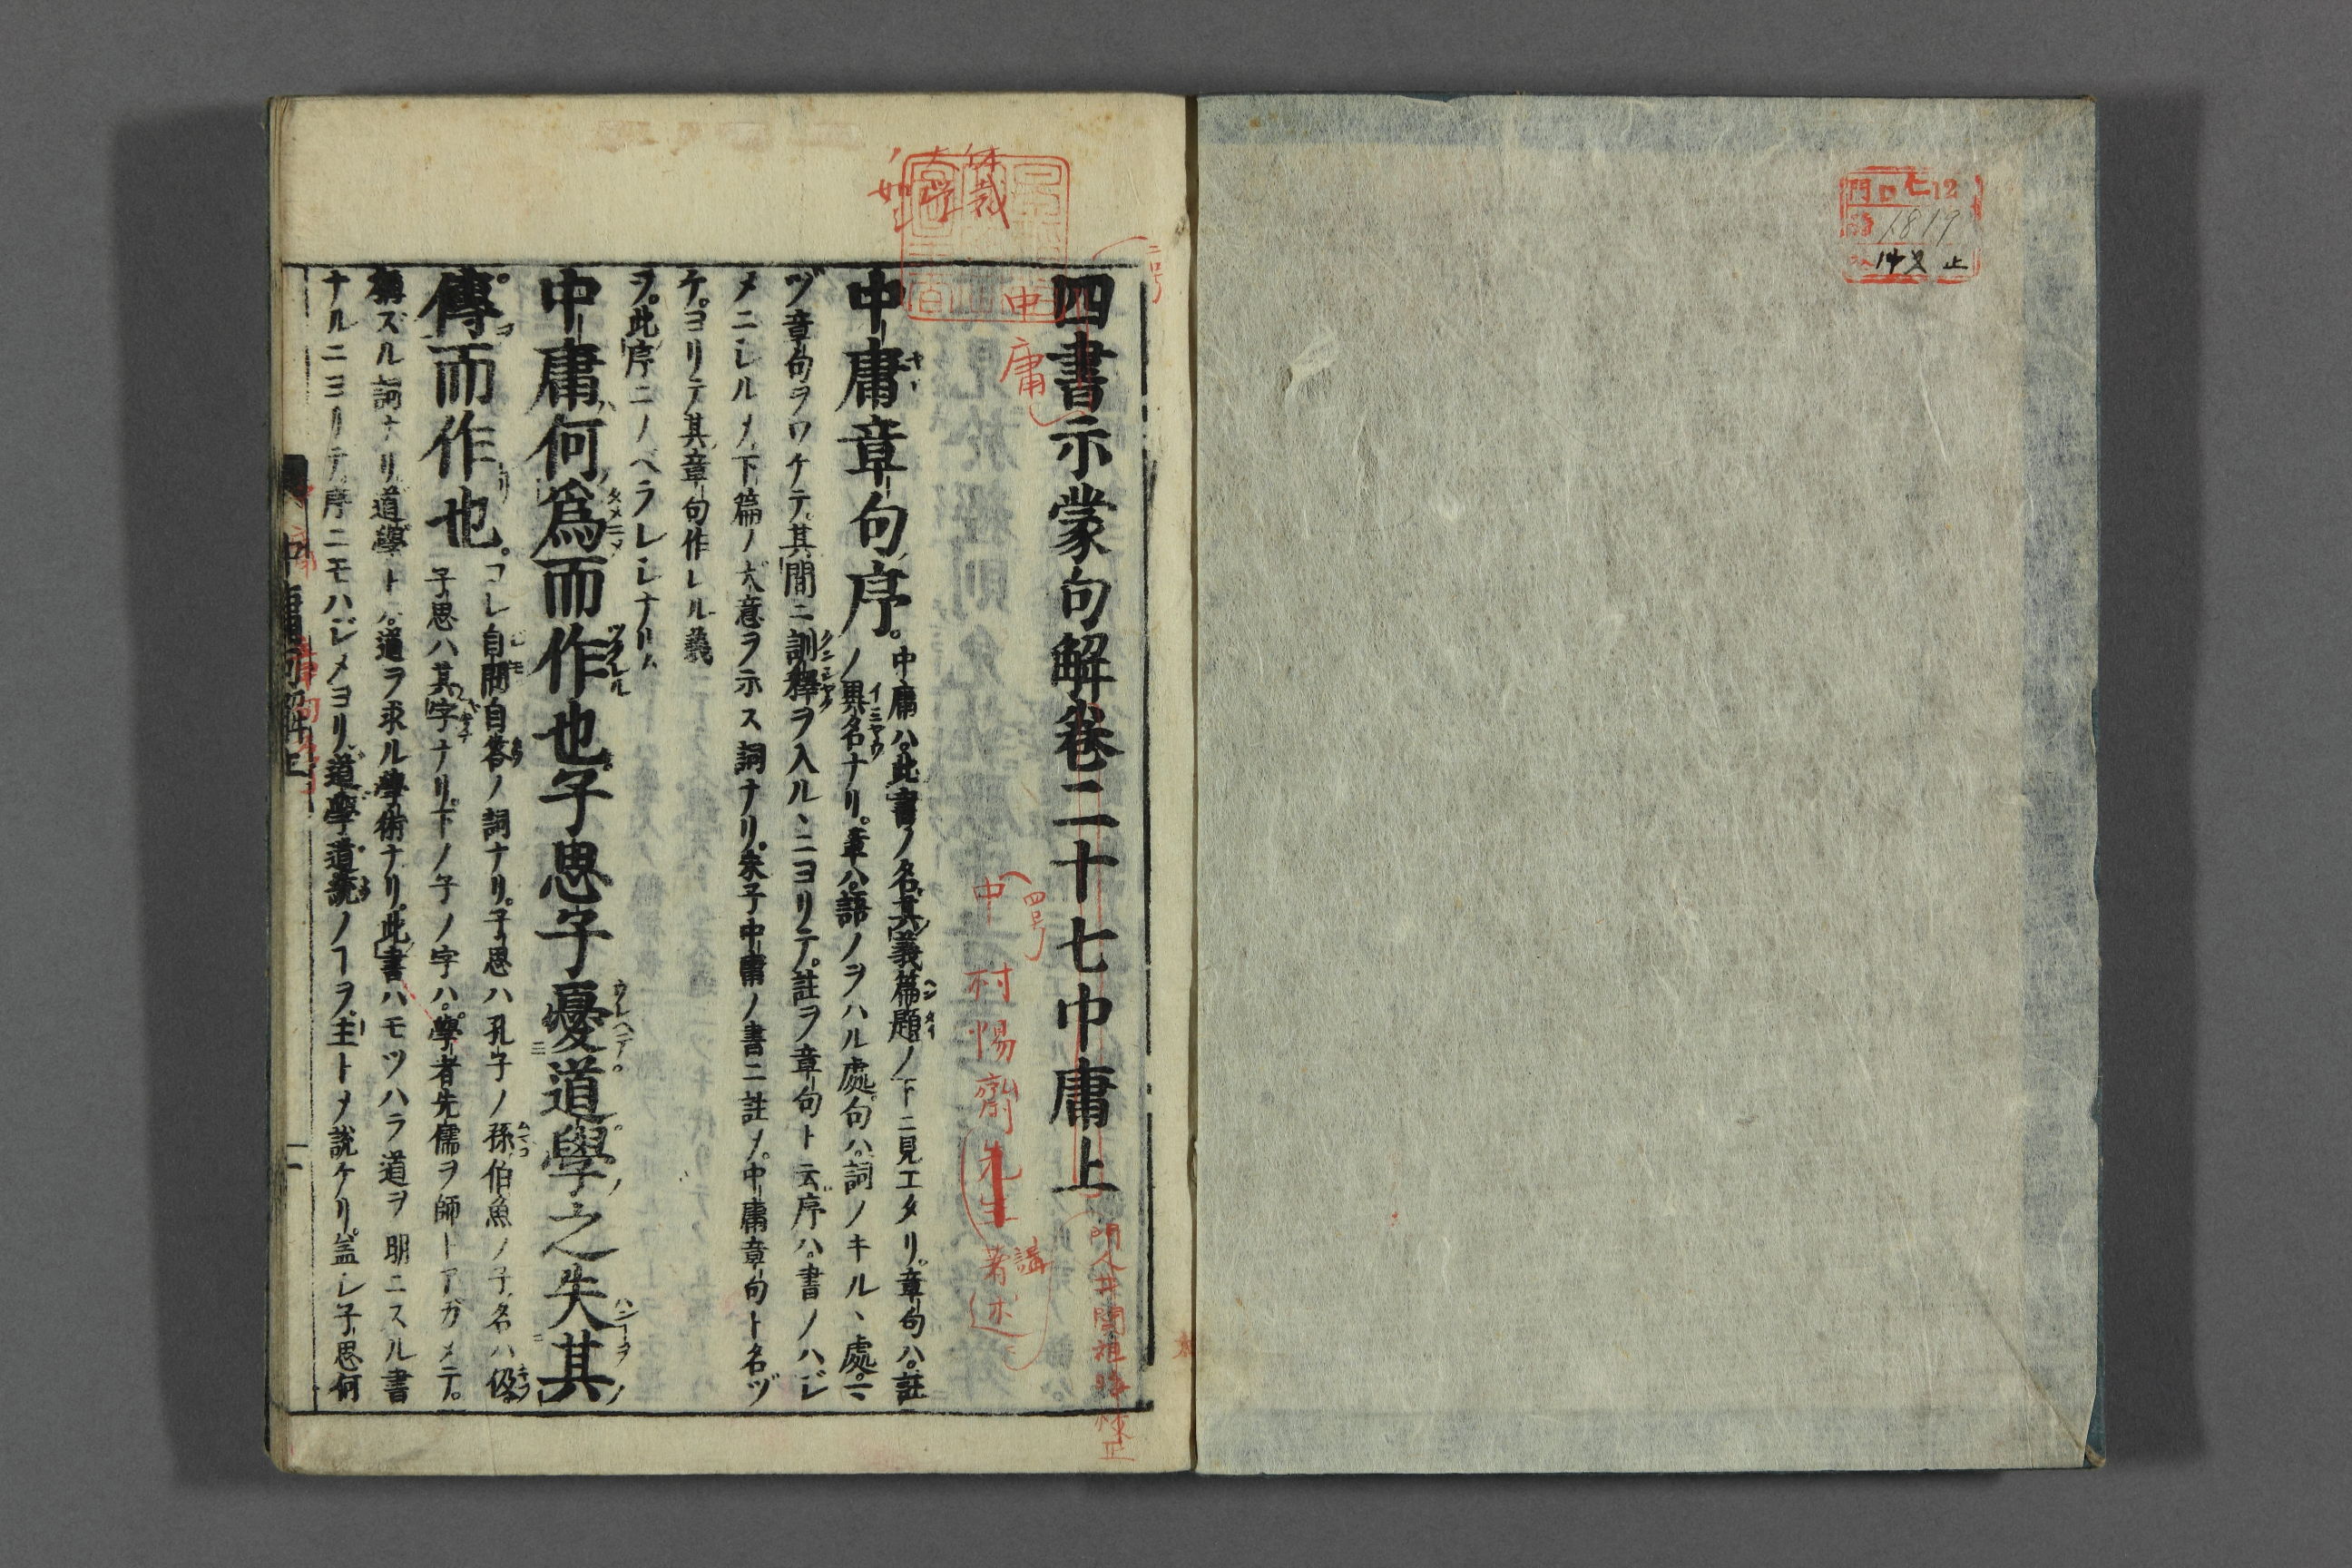 門 ロ 12
號 1819
四書示蒙句解卷二十七中庸上
二号
中庸
体裁
大学
如
四号
中村惕齋先生講述
著
門人井
校正
中庸章句序。
中庸ハ。此書ノ名。其義篇題ノ下ニ見エタリ。章句ハ。註
ノ異名ナリ。章ハ。語ノヲハル處。句ハ。詞ノキル、處。マ
ヅ章句ヲワケテ。其間ニ訓釋ヲ入ル、ニヨリテ。註ヲ章句ト云。序ハ。書ノハジ
メニシルメ。下篇ノ大意ヲ示ス詞ナリ。朱子中庸ノ書ニ註メ。中庸章句ト名ヅ
ケ。ヨリテ其章句作レル義
ヲ。此序ニノベラレシナリ
中庸何爲而作也子思子憂道學之失其
傳而作也。
コレ自問自答ノ詞ナリ。子思ハ孔子ノ孫。伯魚ノ子。名ハ伋。
子思ハ其字ナリ。下ノ子ノ字ハ。學者先儒ヲ師トアガメテ。
稱ズル詞ナリ。道學トハ。道ヲ求ル學術ナリ。此書ハモツハラ道ヲ明ニスル書
ナルニヨリテ。序ニモハジメヨリ。道學道統ノヿヲ。主トメ說ケリ。蓋シ子思何
中庸句解上
一